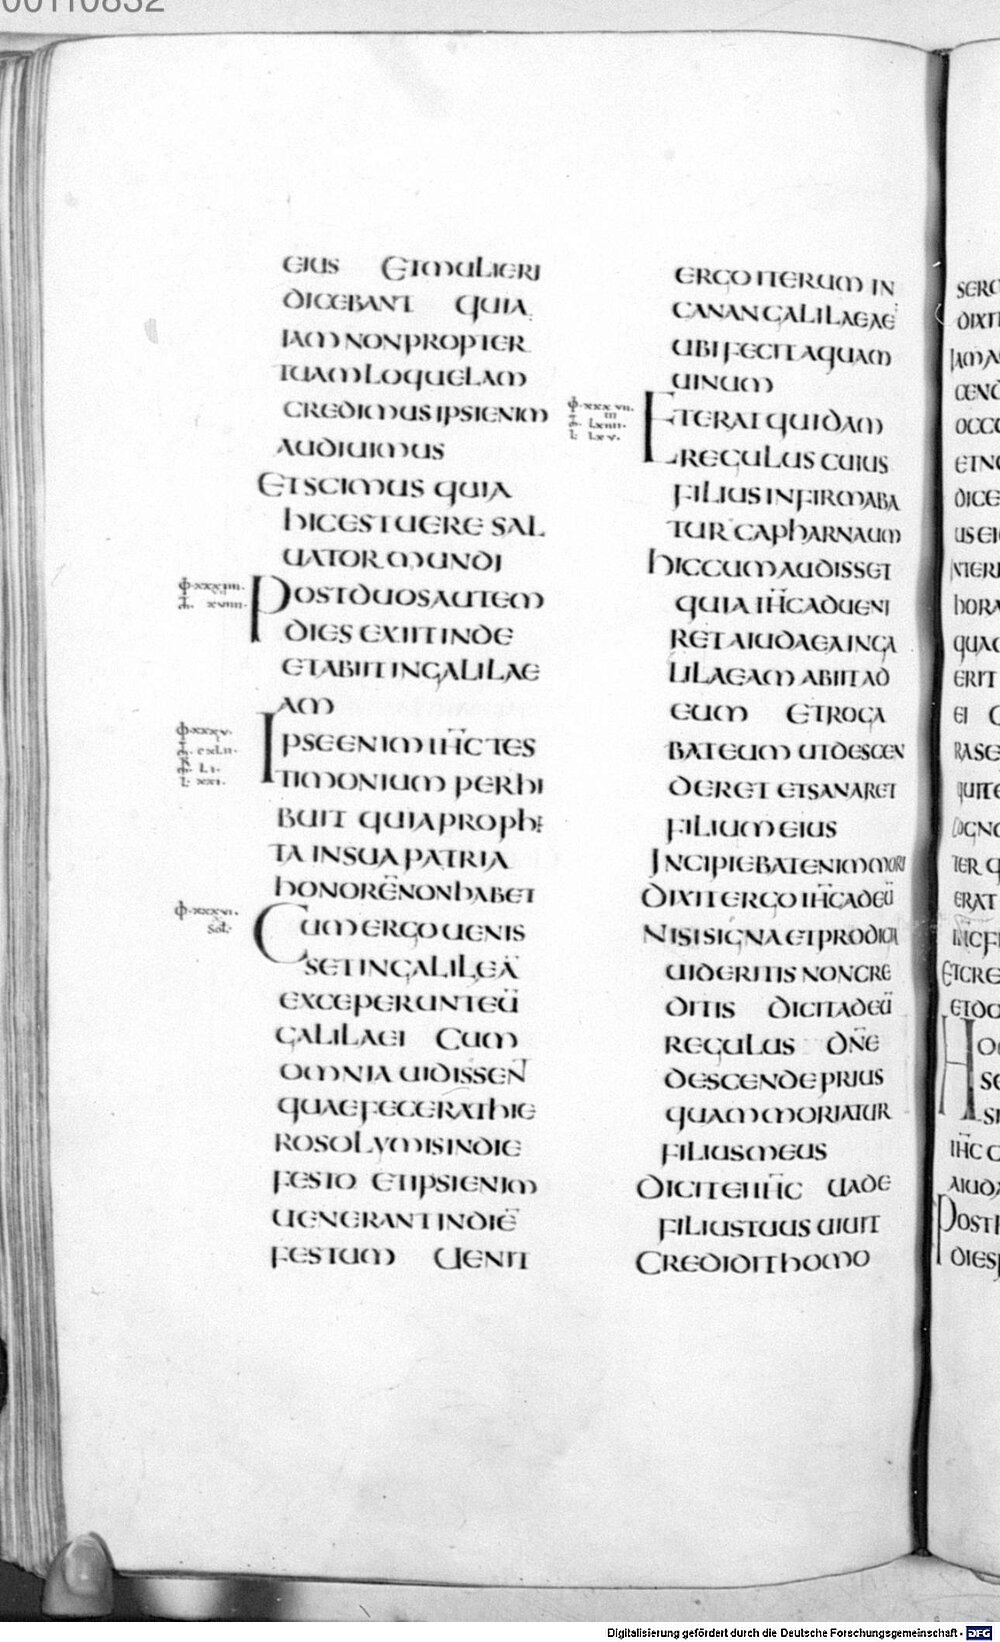 00110832
EIUS ETMULIERI
DICEBANT QUIA
IAMNONPROPTER
TUAMLOQUELAM
CREDIMUSIPSIENIM
AUDIUIMUS
ETSCIMUS QUIA
HICESTUERE SAL
UATORMUNDI
POSTDUOSAUTEM
DIES EXIITINDE
ETABIITINGALILAE
AM
IPSEENIMIHCTES
TIMONIUM PERHI
BUIT QUIAPROPHE
TA INSUAPATRIA
HONORĒNONHABET
CUMERGOUENIS
SETINGALILEĀ
EXCEPERUNTEŪ
GALILAEI CUM
OMNIAUIDISSENT
QUAEFECERATHIE
ROSOLYMISINDIE
FESTO ETIPSIENIM
UENERANTINDIĒ
FESTUM UENIT
ERGOITERUM IN
CANANGALILAEAE
UBIFECITAQUAM
UINUM
ETERATQUIDAM
REGULUS CUIUS
FILIUSINFIRMABA
TUR CAPHARNAUM
HICCUMAUDISSET
QUIA IHCADUENI
RETAIUDAEAINGA
LILAEAM ABIITAD
EUM ETROGA
BATEUM UTDESCEN
DERET ETSANARET
FILIUMEIUS
INCIPIEBATENIMMORI
DIXITERGOIHCADEŪ
NISISIGNAETPRODIGIA
UIDERITIS NONCRE
DITIS DICITADEŪ
REGULUS DNE
DESCENDEPRIUS
QUAMMORIATUR
FILIUSMEUS
DICITEIIHC UADE
FILIUSTUUS UIUIT
CREDIDITHOMO
Digitalisierung gefördert durch die Deutsche Forschungsgemeinschaft - DFG